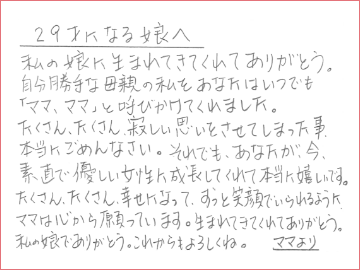 29才になる娘へ
私の娘に生まれてきてくれてありがとう。
自分勝手な母親の私をあなたはいつでも
「ママ、ママ」と呼びかけてくれました。
たくさん、たくさん、寂しい思いをさせてしまった事、
本当にごめんなさい。それでも、あなたが、今、
素直で優しい女性に成長してくれて本当に嬉しいです。
たくさん、たくさん、幸せになって、ずっと笑顔でいられるように、
ママは心から願っています。生まれてきてくれてありがとう。
私の娘でありがとう。これからもよろしくね。 ママより